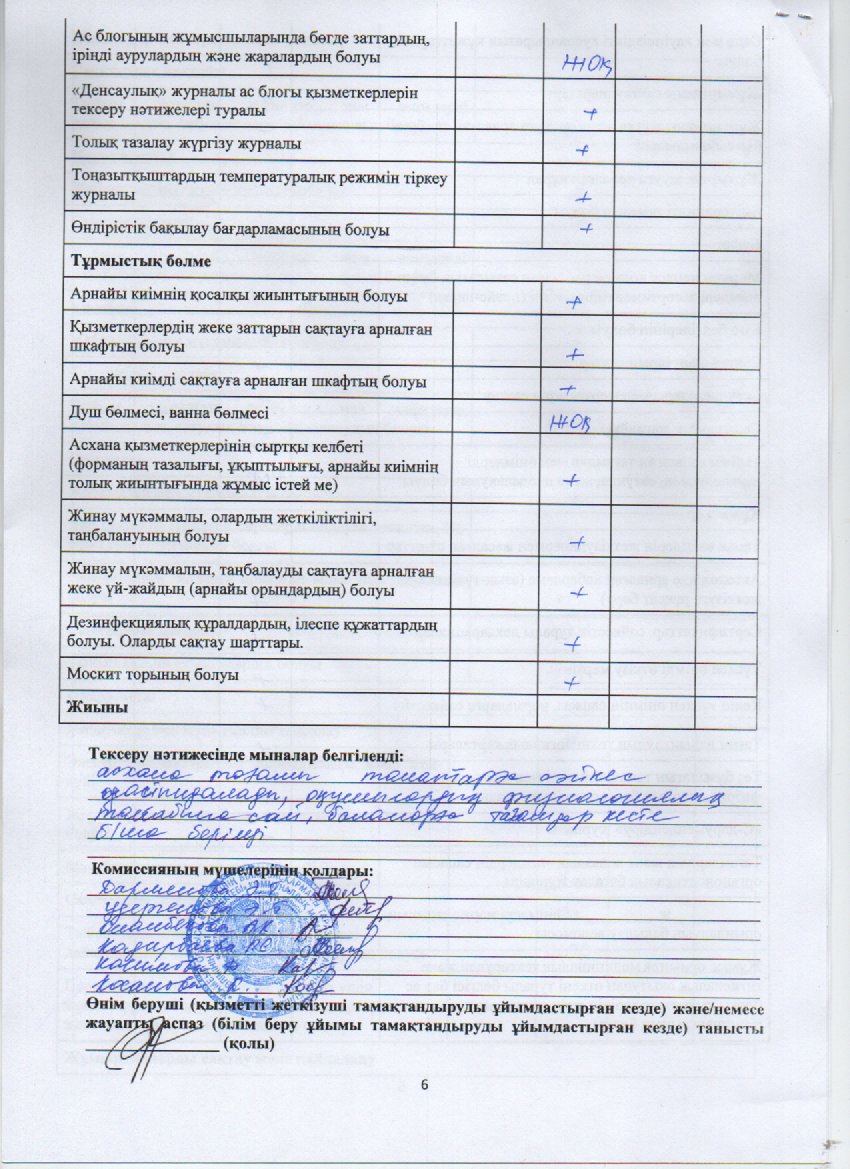 Ас блогының жұмысшыларында бөгде заттардың,
іріңді аурулардың және жаралардың болуы
жоқ
«Денсаулық» журналы ас блогы қызметкерлерін
тексеру нәтижелері туралы
+
Толық тазалау жүргізу журналы
+
Тоңазытқыштардың температуралық режимін тіркеу
журналы
+
Өндірістік бақылау бағдарламасының болуы
+
Тұрмыстық бөлме
Арнайы киімнің қосалқы жиынтығының болуы
+
Қызметкерлердің жеке заттарын сақтауға арналған
шкафтың болуы
+
Арнайы киімді сақтауға арналған шкафтың болуы
+
Душ бөлмесі, ванна бөлмесі
жоқ
Асхана қызметкерлерінің сыртқы келбеті
(форманың тазалығы, ұқыптылығы, арнайы киімнің
толық жиынтығында жұмыс істей ме)
+
Жинау мүкәммалы, олардың жеткіліктілігі,
таңбалануының болуы
+
Жинау мүкәммалын, таңбалауды сақтауға арналған
жеке үй-жайдың (арнайы орындардың) болуы
+
Дезинфекциялық құралдардың, ілеспе құжаттардың
болуы. Оларды сақтау шарттары.
+
Москит торының болуы
+
Жиыны
Тексеру нәтижесінде мыналар белгіленді:
асхана тазалық талаптарға сәйкес
оқушылардың физиологиялық
сай, балаларға тағамдар кесте
б/ша берілді
Комиссияның мүшелерінің қолдары:
Өнім беруші (қызметті жеткізуші тамақтандыруды ұйымдастырған кезде) және/немесе
жауапты аспаз (білім беру ұйымы тамақтандыруды ұйымдастырған кезде) танысты
(қолы)
6